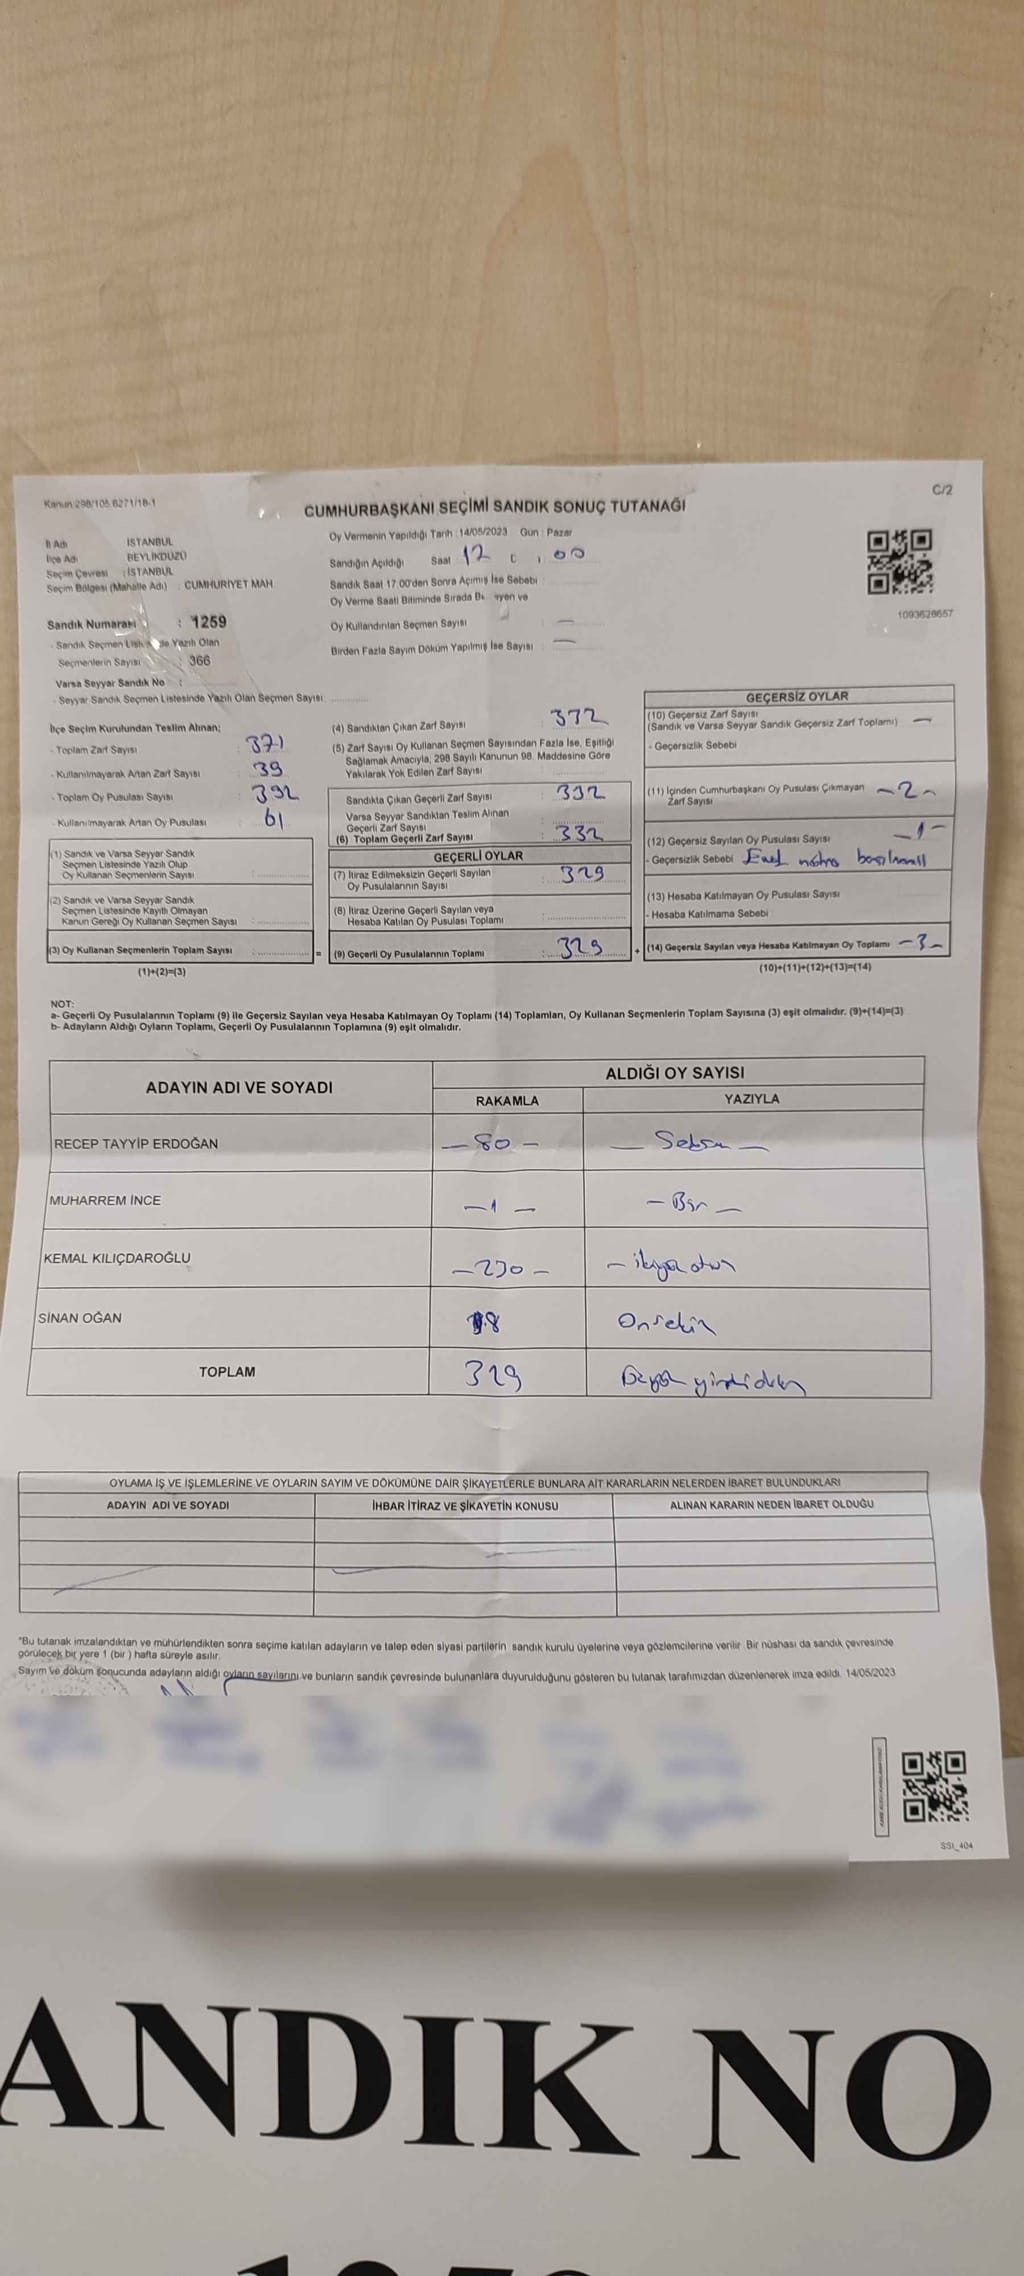 Kanun 298/105 6271/18-1
C/2
CUMHURBAŞKANI SEÇİMİ SANDIK SONUÇ TUTANAĞI
İl Adı İSTANBUL
İlçe Adı BEYLİKDÜZÜ
Seçim Çevresi : İSTANBUL
Seçim Bölgesi (Mahalle Adı) : CUMHURİYET MAH.
Sandık Numarası : 1259
- Sandık Seçmen Listesinde Yazılı Olan
Seçmenlerin Sayısı : 366
Varsa Seyyar Sandık No :
- Seyyar Sandık Seçmen Listesinde Yazılı Olan Seçmen Sayısı :
Oy Vermenin Yapıldığı Tarih : 14/05/2023 Gün : Pazar
Sandığın Açıldığı Saat 17 : 00
Sandık Saat 17:00'den Sonra Açılmış İse Sebebi
Oy Verme Saati Bitiminde Sırada Bekleyen ve
Oy Kullandırılan Seçmen Sayısı : —
Birden Fazla Sayım Döküm Yapılmış İse Sayısı : —
1093628657
İlçe Seçim Kurulundan Teslim Alınan;
- Toplam Zarf Sayısı : 371
- Kullanılmayarak Artan Zarf Sayısı : 39
- Toplam Oy Pusulası Sayısı : 392
- Kullanılmayarak Artan Oy Pusulası : 61
(1) Sandık ve Varsa Seyyar Sandık
Seçmen Listesinde Yazılı Olup
Oy Kullanan Seçmenlerin Sayısı :
(2) Sandık ve Varsa Seyyar Sandık
Seçmen Listesinde Kayıtlı Olmayan
Kanun Gereği Oy Kullanan Seçmen Sayısı :
(3) Oy Kullanan Seçmenlerin Toplam Sayısı : =
(1)+(2)=(3)
(4) Sandıktan Çıkan Zarf Sayısı : 332
(5) Zarf Sayısı Oy Kullanan Seçmen Sayısından Fazla İse, Eşitliği
Sağlamak Amacıyla, 298 Sayılı Kanunun 98. Maddesine Göre
Yakılarak Yok Edilen Zarf Sayısı :
Sandıkta Çıkan Geçerli Zarf Sayısı : 332
Varsa Seyyar Sandıktan Teslim Alınan
Geçerli Zarf Sayısı :
(6) Toplam Geçerli Zarf Sayısı : 332
GEÇERLİ OYLAR
(7) İtiraz Edilmeksizin Geçerli Sayılan : 329
Oy Pusulalarının Sayısı
(8) İtiraz Üzerine Geçerli Sayılan veya
Hesaba Katılan Oy Pusulası Toplamı :
(9) Geçerli Oy Pusulalarının Toplamı : 329 +
GEÇERSİZ OYLAR
(10) Geçersiz Zarf Sayısı
(Sandık ve Varsa Seyyar Sandık Geçersiz Zarf Toplamı) —
- Geçersizlik Sebebi
(11) İçinden Cumhurbaşkanı Oy Pusulası Çıkmayan — 2 —
Zarf Sayısı
(12) Geçersiz Sayılan Oy Pusulası Sayısı — 1 —
- Geçersizlik Sebebi Evet mührü basılmamış
(13) Hesaba Katılmayan Oy Pusulası Sayısı
- Hesaba Katılmama Sebebi
(14) Geçersiz Sayılan veya Hesaba Katılmayan Oy Toplamı — 3 —
(10)+(11)+(12)+(13)=(14)
NOT:
a- Geçerli Oy Pusulalarının Toplamı (9) ile Geçersiz Sayılan veya Hesaba Katılmayan Oy Toplamı (14) Toplamları, Oy Kullanan Seçmenlerin Toplam Sayısına (3) eşit olmalıdır. (9)+(14)=(3)
b- Adayların Aldığı Oyların Toplamı, Geçerli Oy Pusulalarının Toplamına (9) eşit olmalıdır.
ADAYIN ADI VE SOYADI
ALDIĞI OY SAYISI
RAKAMLA YAZIYLA
RECEP TAYYİP ERDOĞAN — 80 — — Seksen —
MUHARREM İNCE — 1 — — Bir —
KEMAL KILIÇDAROĞLU — 230 — — ikiyüz otuz
SİNAN OĞAN 18 Onsekiz
TOPLAM 329 Üçyüz yirmi dokuz
OYLAMA İŞ VE İŞLEMLERİNE VE OYLARIN SAYIM VE DÖKÜMÜNE DAİR ŞİKAYETLERLE BUNLARA AİT KARARLARIN NELERDEN İBARET BULUNDUKLARI
ADAYIN ADI VE SOYADI İHBAR İTİRAZ VE ŞİKAYETİN KONUSU ALINAN KARARIN NEDEN İBARET OLDUĞU
*Bu tutanak imzalandıktan ve mühürlendikten sonra seçime katılan adayların ve talep eden siyasi partilerin sandık kurulu üyelerine veya gözlemcilerine verilir. Bir nüshası da sandık çevresinde
görülecek bir yere 1 (bir) hafta süreyle asılır.
Sayım ve döküm sonucunda adayların aldığı oyların sayılarını ve bunların sandık çevresinde bulunanlara duyurulduğunu gösteren bu tutanak tarafımızdan düzenlenerek imza edildi. 14/05/2023
SSI_404
ANDIK NO